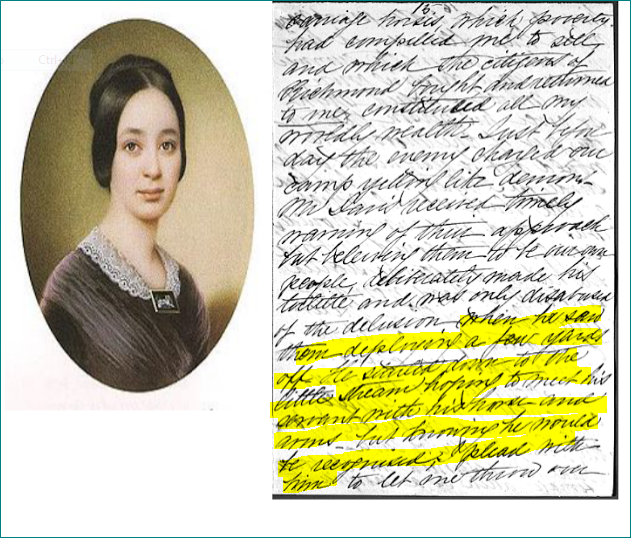 Ctrl
carriage horses, which poverty
had compelled me to sell
and which the citizens of
Richmond bought and returned
to me, constituted all my
worldly wealth. Just before
day the enemy charged our
camp yelling like demons.
Mr Davis received timely
warning of their approach
but believing them to be our own
people, deliberately made his
toilette and was only disabused
of the delusion, when he saw
them deploying a few yards
off. He started down to the
little stream hoping to meet his
servant with his horse and
arms, but knowing he would
be recognised, I plead with
him to let me throw